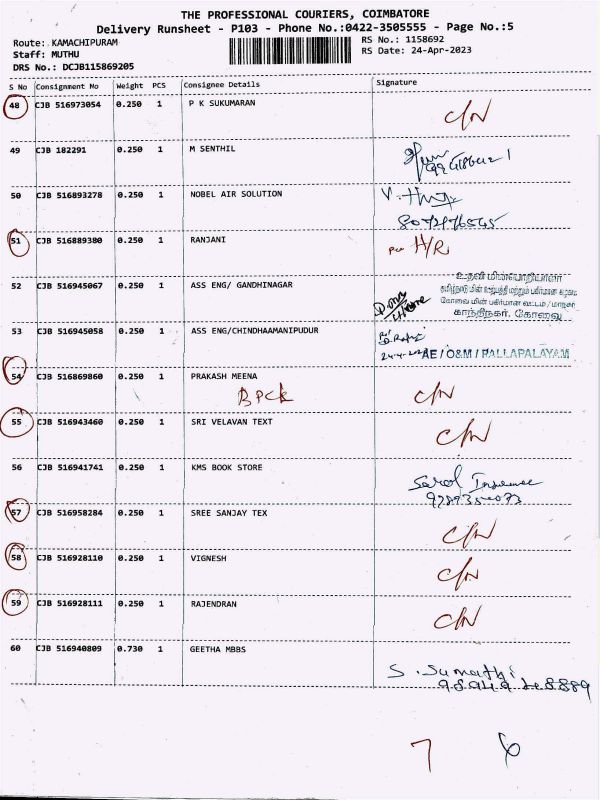 THE PROFESSIONAL COURIERS, COIMBATORE
Delivery Runsheet - P103 - Phone No.:0422-3505555 - Page No.:5
Route: KAMACHIPURAM
RS No.: 1158692
Staff: MUTHU
RS Date: 24-Apr-2023
DRS No.: DCJB115869205
S No Consignment No Weight PCS Consignee Details Signature
48 CJB 516973054 0.250 1 P K SUKUMARAN C/N
49 CJB 182291 0.250 1 M SENTHIL
50 CJB 516893278 0.250 1 NOBEL AIR SOLUTION
51 CJB 516889380 0.250 1 RANJANI H/R
52 CJB 516945067 0.250 1 ASS ENG/ GANDHINAGAR
உதவி மின்பொறியாளர்
காந்திநகர், கோவை
53 CJB 516945058 0.250 1 ASS ENG/CHINDHAAMANIPUDUR
AE / O&M / PALLAPALAYAM
54 CJB 516869860 0.250 1 PRAKASH MEENA C/N
55 CJB 516943460 0.250 1 SRI VELAVAN TEXT C/N
56 CJB 516941741 0.250 1 KMS BOOK STORE
57 CJB 516958284 0.250 1 SREE SANJAY TEX C/N
58 CJB 516928110 0.250 1 VIGNESH C/N
59 CJB 516928111 0.250 1 RAJENDRAN C/N
60 CJB 516940809 0.730 1 GEETHA MBBS
S. Sumathi
7 6